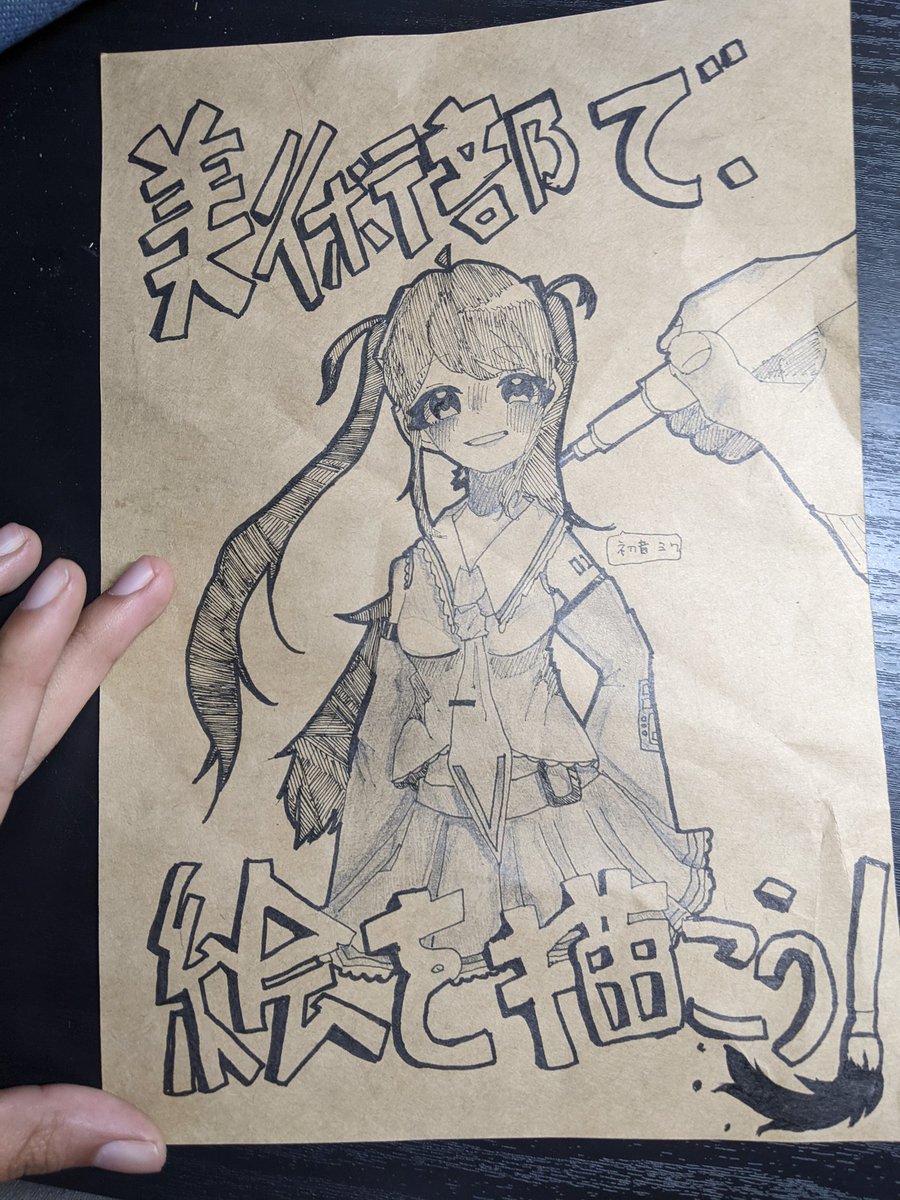 美術部で
初音ミク
01
絵を描こう!